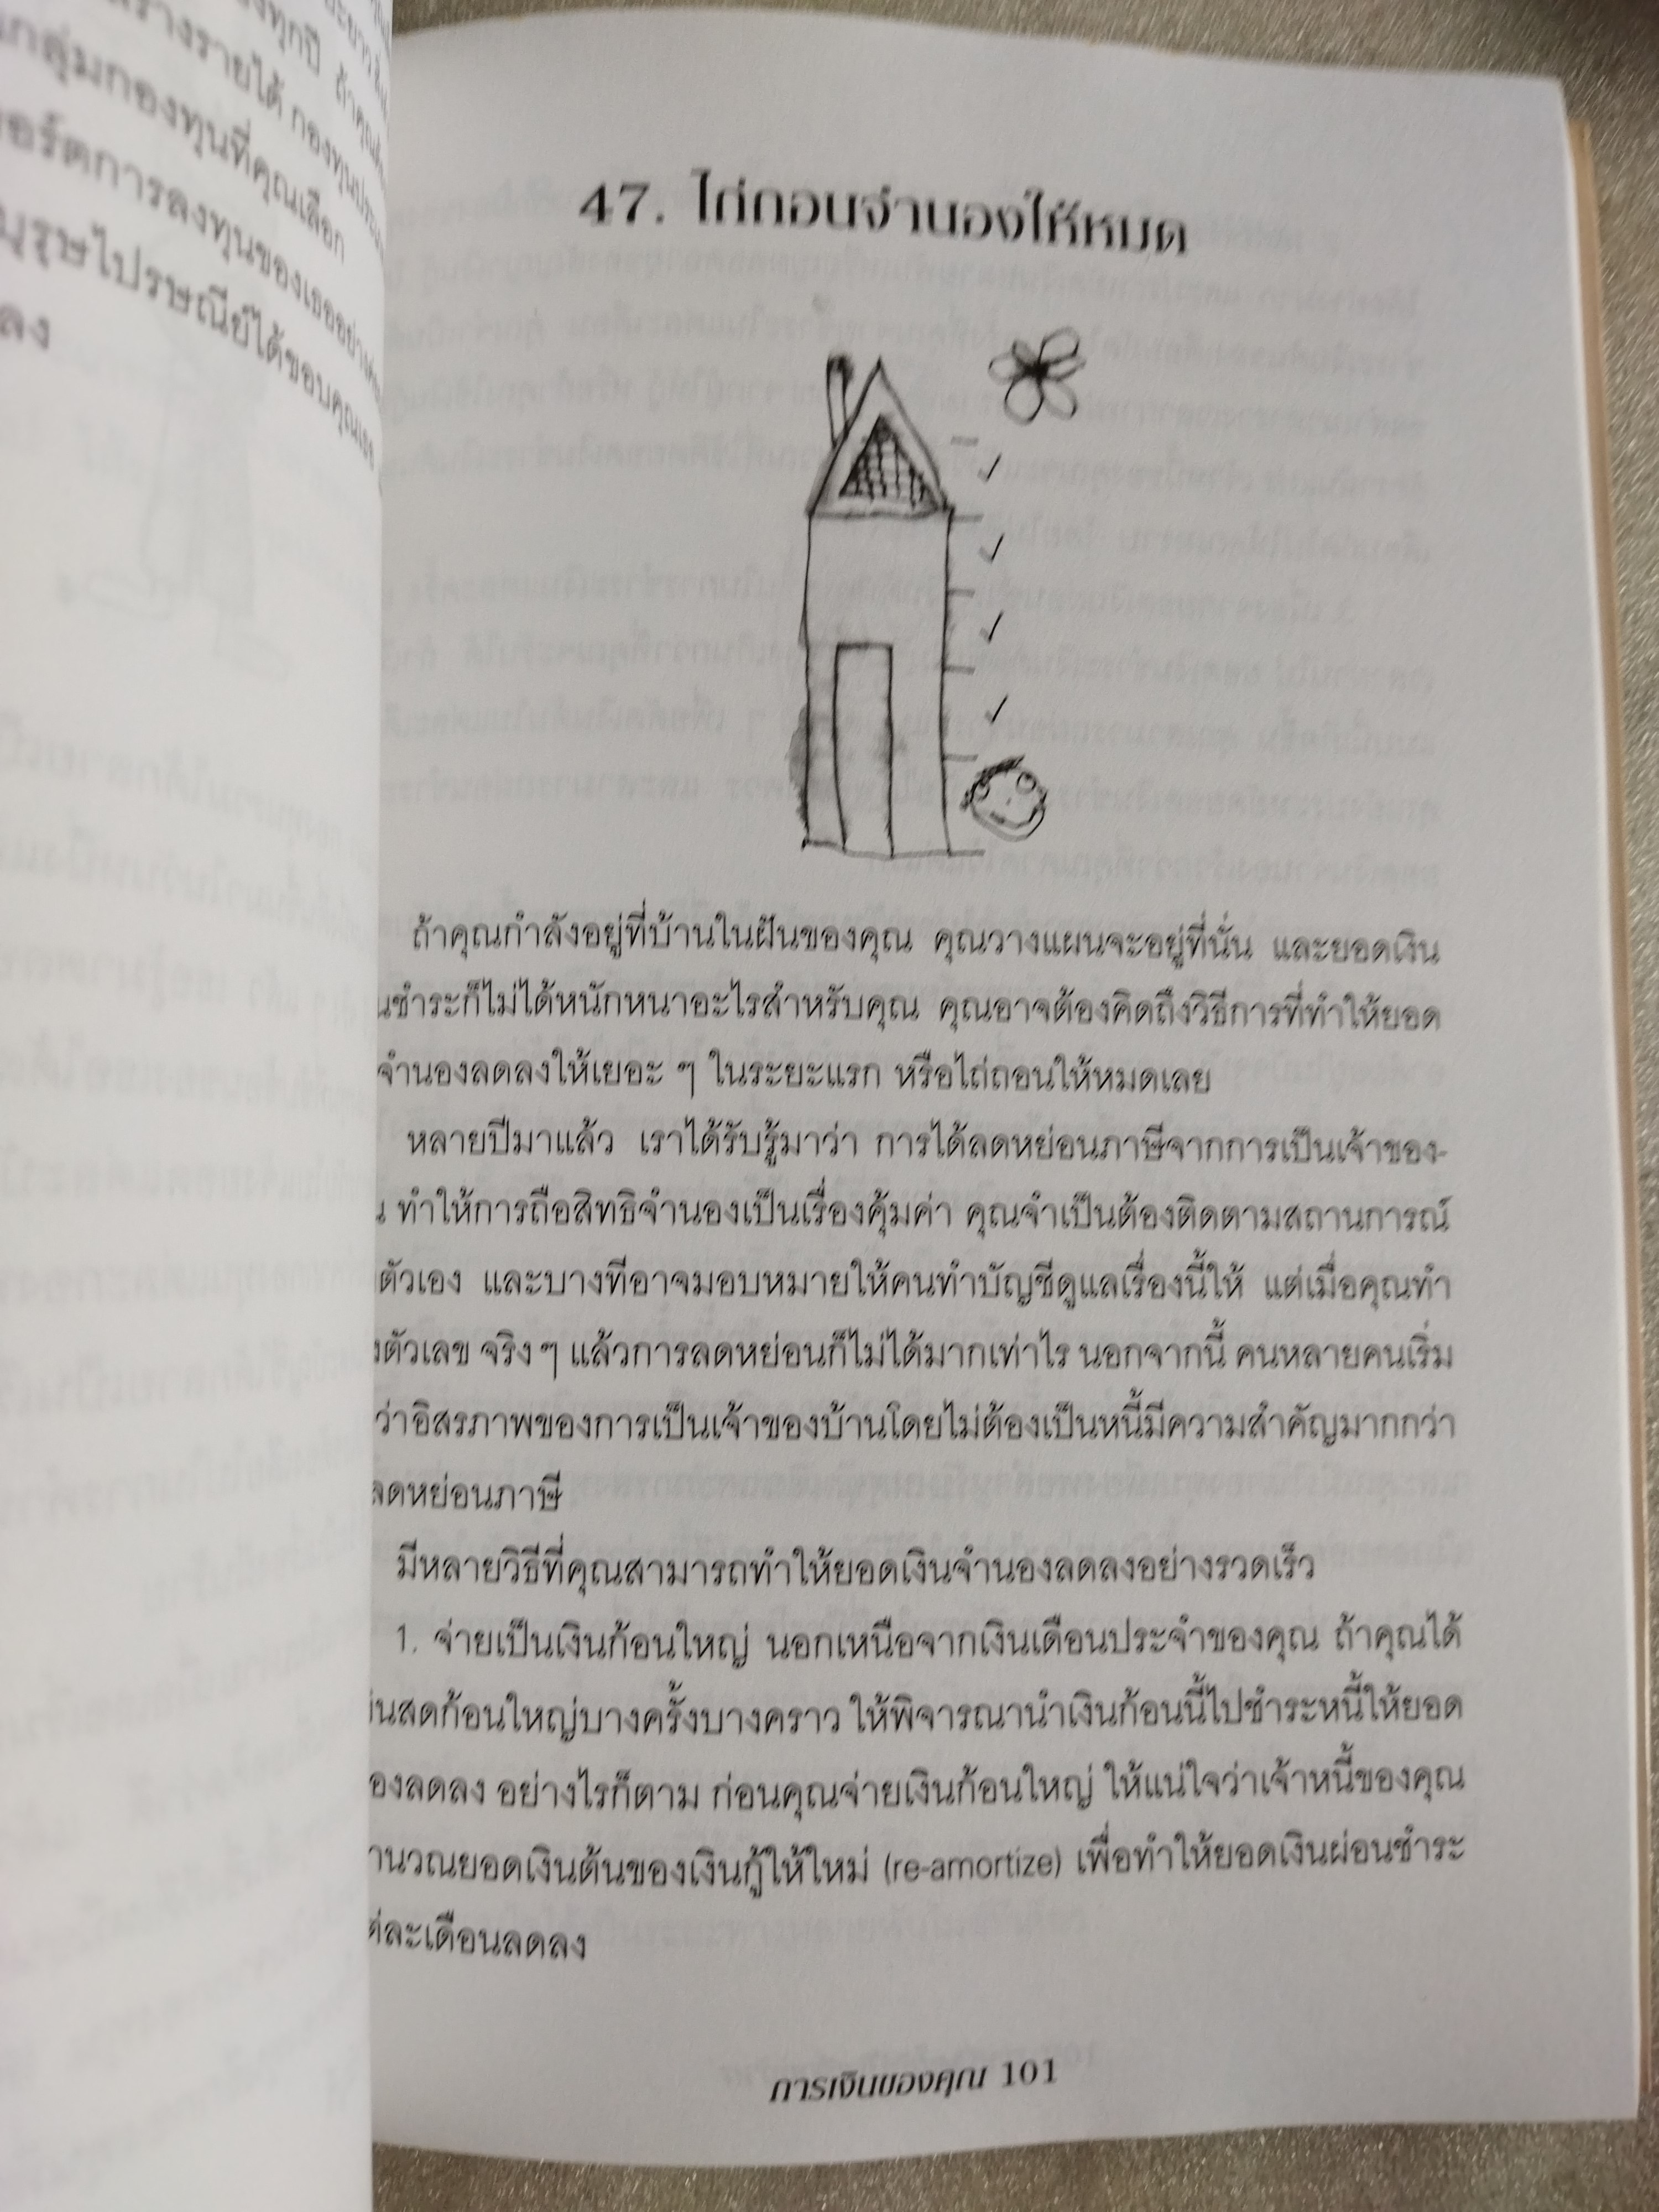 ทุกปี ถ้าคุณ
รายได้ กองทุน
กลุ่มกองทุนที่คุณเลือก
การลงทุนของเธออย่าง
บุรุษไปรษณีย์ได้ขอบคุณเธอ
ลง
47. ไถ่ถอนจำนองให้หมด
ถ้าคุณกำลังอยู่ที่บ้านในฝันของคุณ คุณวางแผนจะอยู่ที่นั่น และยอดเงิน
นชำระก็ไม่ได้หนักหนาอะไรสำหรับคุณ คุณอาจต้องคิดถึงวิธีการที่ทำให้ยอด
จำนองลดลงให้เยอะ ๆ ในระยะแรก หรือไถ่ถอนให้หมดเลย
หลายปีมาแล้ว เราได้รับรู้มาว่า การได้ลดหย่อนภาษีจากการเป็นเจ้าของ-
น ทำให้การถือสิทธิจำนองเป็นเรื่องคุ้มค่า คุณจำเป็นต้องติดตามสถานการณ์
ตัวเอง และบางทีอาจมอบหมายให้คนทำบัญชีดูแลเรื่องนี้ให้ แต่เมื่อคุณทำ
งตัวเลข จริง ๆ แล้วการลดหย่อนก็ไม่ได้มากเท่าไร นอกจากนี้ คนหลายคนเริ่ม
ว่าอิสรภาพของการเป็นเจ้าของบ้านโดยไม่ต้องเป็นหนี้มีความสำคัญมากกว่า
ลดหย่อนภาษี
มีหลายวิธีที่คุณสามารถทำให้ยอดเงินจำนองลดลงอย่างรวดเร็ว
1. จ่ายเป็นเงินก้อนใหญ่ นอกเหนือจากเงินเดือนประจำของคุณ ถ้าคุณได้
นสดก้อนใหญ่บางครั้งบางคราว ให้พิจารณานำเงินก้อนนี้ไปชำระหนี้ให้ยอด
องลดลง อย่างไรก็ตาม ก่อนคุณจ่ายเงินก้อนใหญ่ ให้แน่ใจว่าเจ้าหนี้ของคุณ
านวณยอดเงินต้นของเงินกู้ให้ใหม่ (re-amortize) เพื่อทำให้ยอดเงินผ่อนชำระ
ต่ละเดือนลดลง
การเงินของคุณ 101